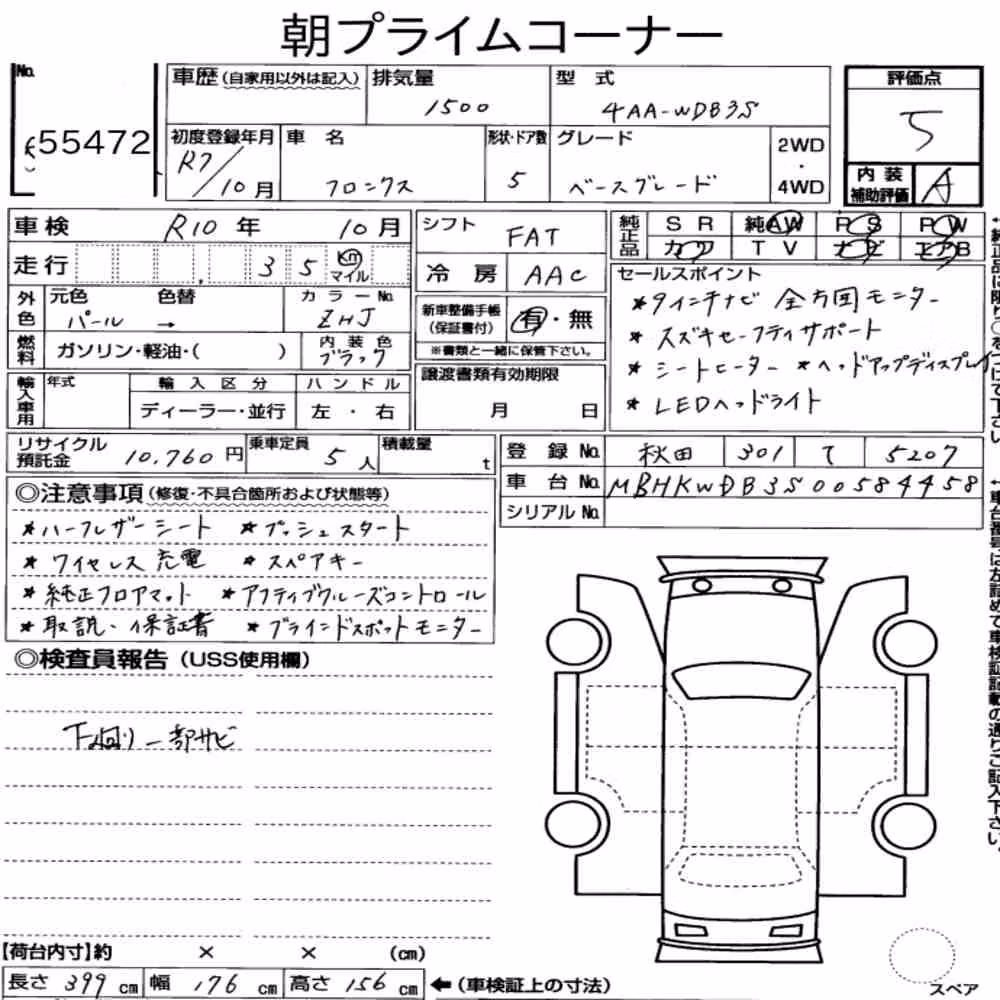 朝プライムコーナー
No.
55472
車歴(自家用以外は記入)
排気量
1500
型式
4AA-WDB3S
評価点
5
初度登録年月
R7/10月
車名
フロンクス
形状・ドア数
5
グレード
ベースグレード
2WD
・
4WD
内装
補助評価
A
車検 R10年 10月
走行 35 Km マイル
外色
元色 パール
色替 →
カラーNo. ZHJ
燃料
ガソリン・軽油・( )
内装色
ブラック
輸入車用
年式
輸入区分
ディーラー・並行
ハンドル
左・右
シフト FAT
冷房 AAC
新車整備手帳
(保証書付)
有・無
※書類と一緒に保管下さい。
譲渡書類有効期限
月 日
純正品
SR 純AW PS PW
カワ TV ナビ エアB
セールスポイント
*9インチナビ 全方囲モニター
*スズキセーフティサポート
*シートヒーター *ヘッドアップディスプレイ
*LEDヘッドライト
リサイクル
預託金 10,760円
乗車定員 5人
積載量 t
登録No. 秋田 301 て 5207
車台No. MBHKWDB3S00584458
シリアルNo.
◎注意事項(修復・不具合箇所および状態等)
*ハーフレザーシート *プッシュスタート
*ワイヤレス充電 *スペアキー
*純正フロアマット *アクティブクルーズコントロール
*取説・保証書 *ブラインドスポットモニター
◎検査員報告(USS使用欄)
下廻り一部サビ
【荷台内寸】約 × × (cm)
長さ 399 cm 幅 176 cm 高さ 156 cm ←(車検証上の寸法)
スペア
←車台番号は左詰めで車検証記載の通りご記入下さい。